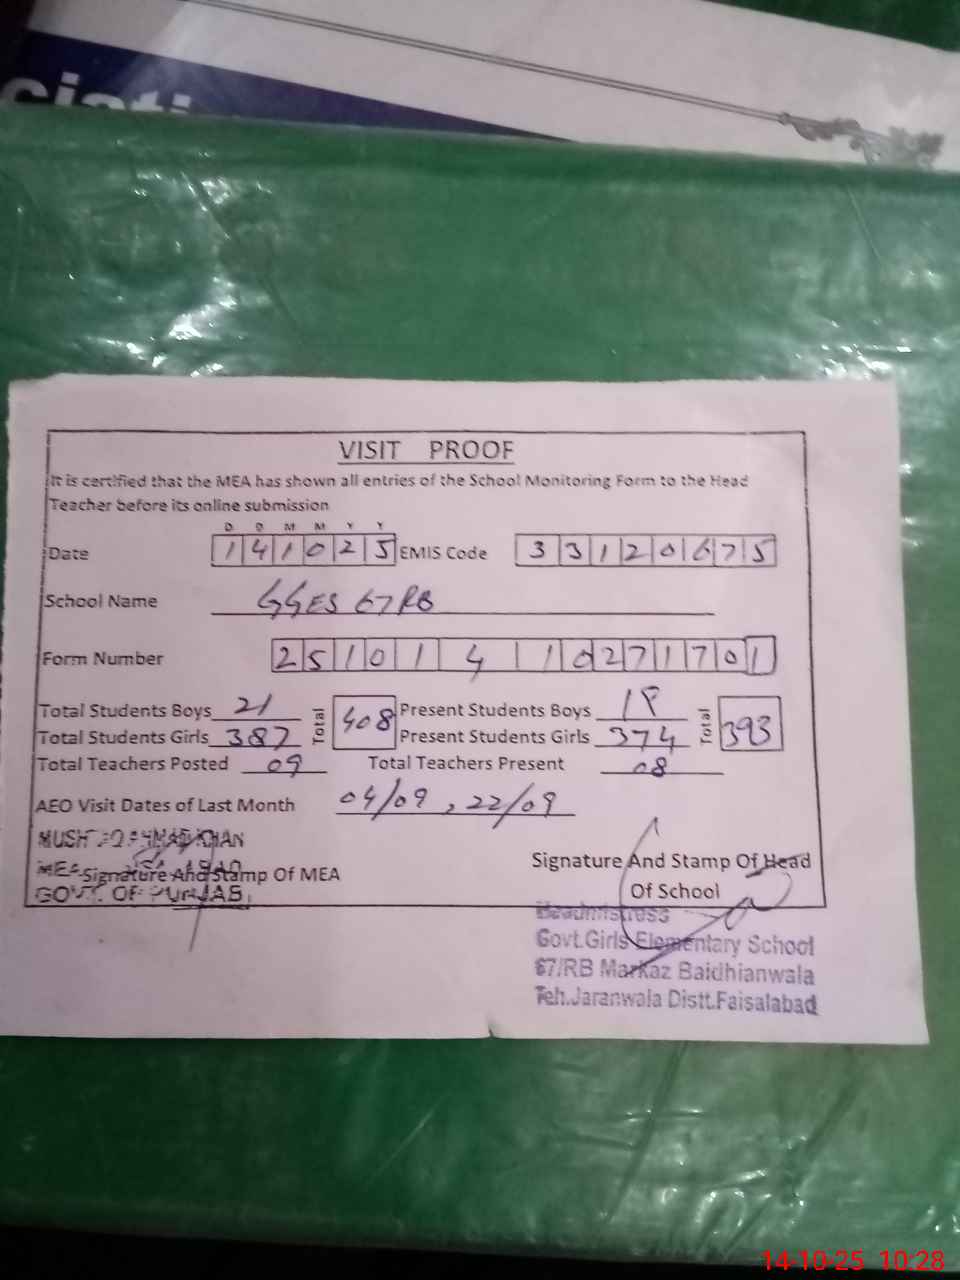 VISIT PROOF
It is certified that the MEA has shown all entries of the School Monitoring Form to the Head
Teacher before its online submission
D D M M Y Y
Date 141025 EMIS Code 33120675
School Name GGES 67 RB
Form Number 25101410271701
Total Students Boys 21 Total 408 Present Students Boys 19 Total 393
Total Students Girls 387 Present Students Girls 374
Total Teachers Posted 09 Total Teachers Present 08
AEO Visit Dates of Last Month 04/09, 22/09
KHAN
MEA
GOVT. OF PUNJAB
Signature And Stamp Of MEA
Signature And Stamp Of Head
Of School
Headmistress
Govt.Girls Elementary School
67/RB Markaz Baidhianwala
Teh.Jaranwala Distt.Faisalabad
14-10-25 10:28